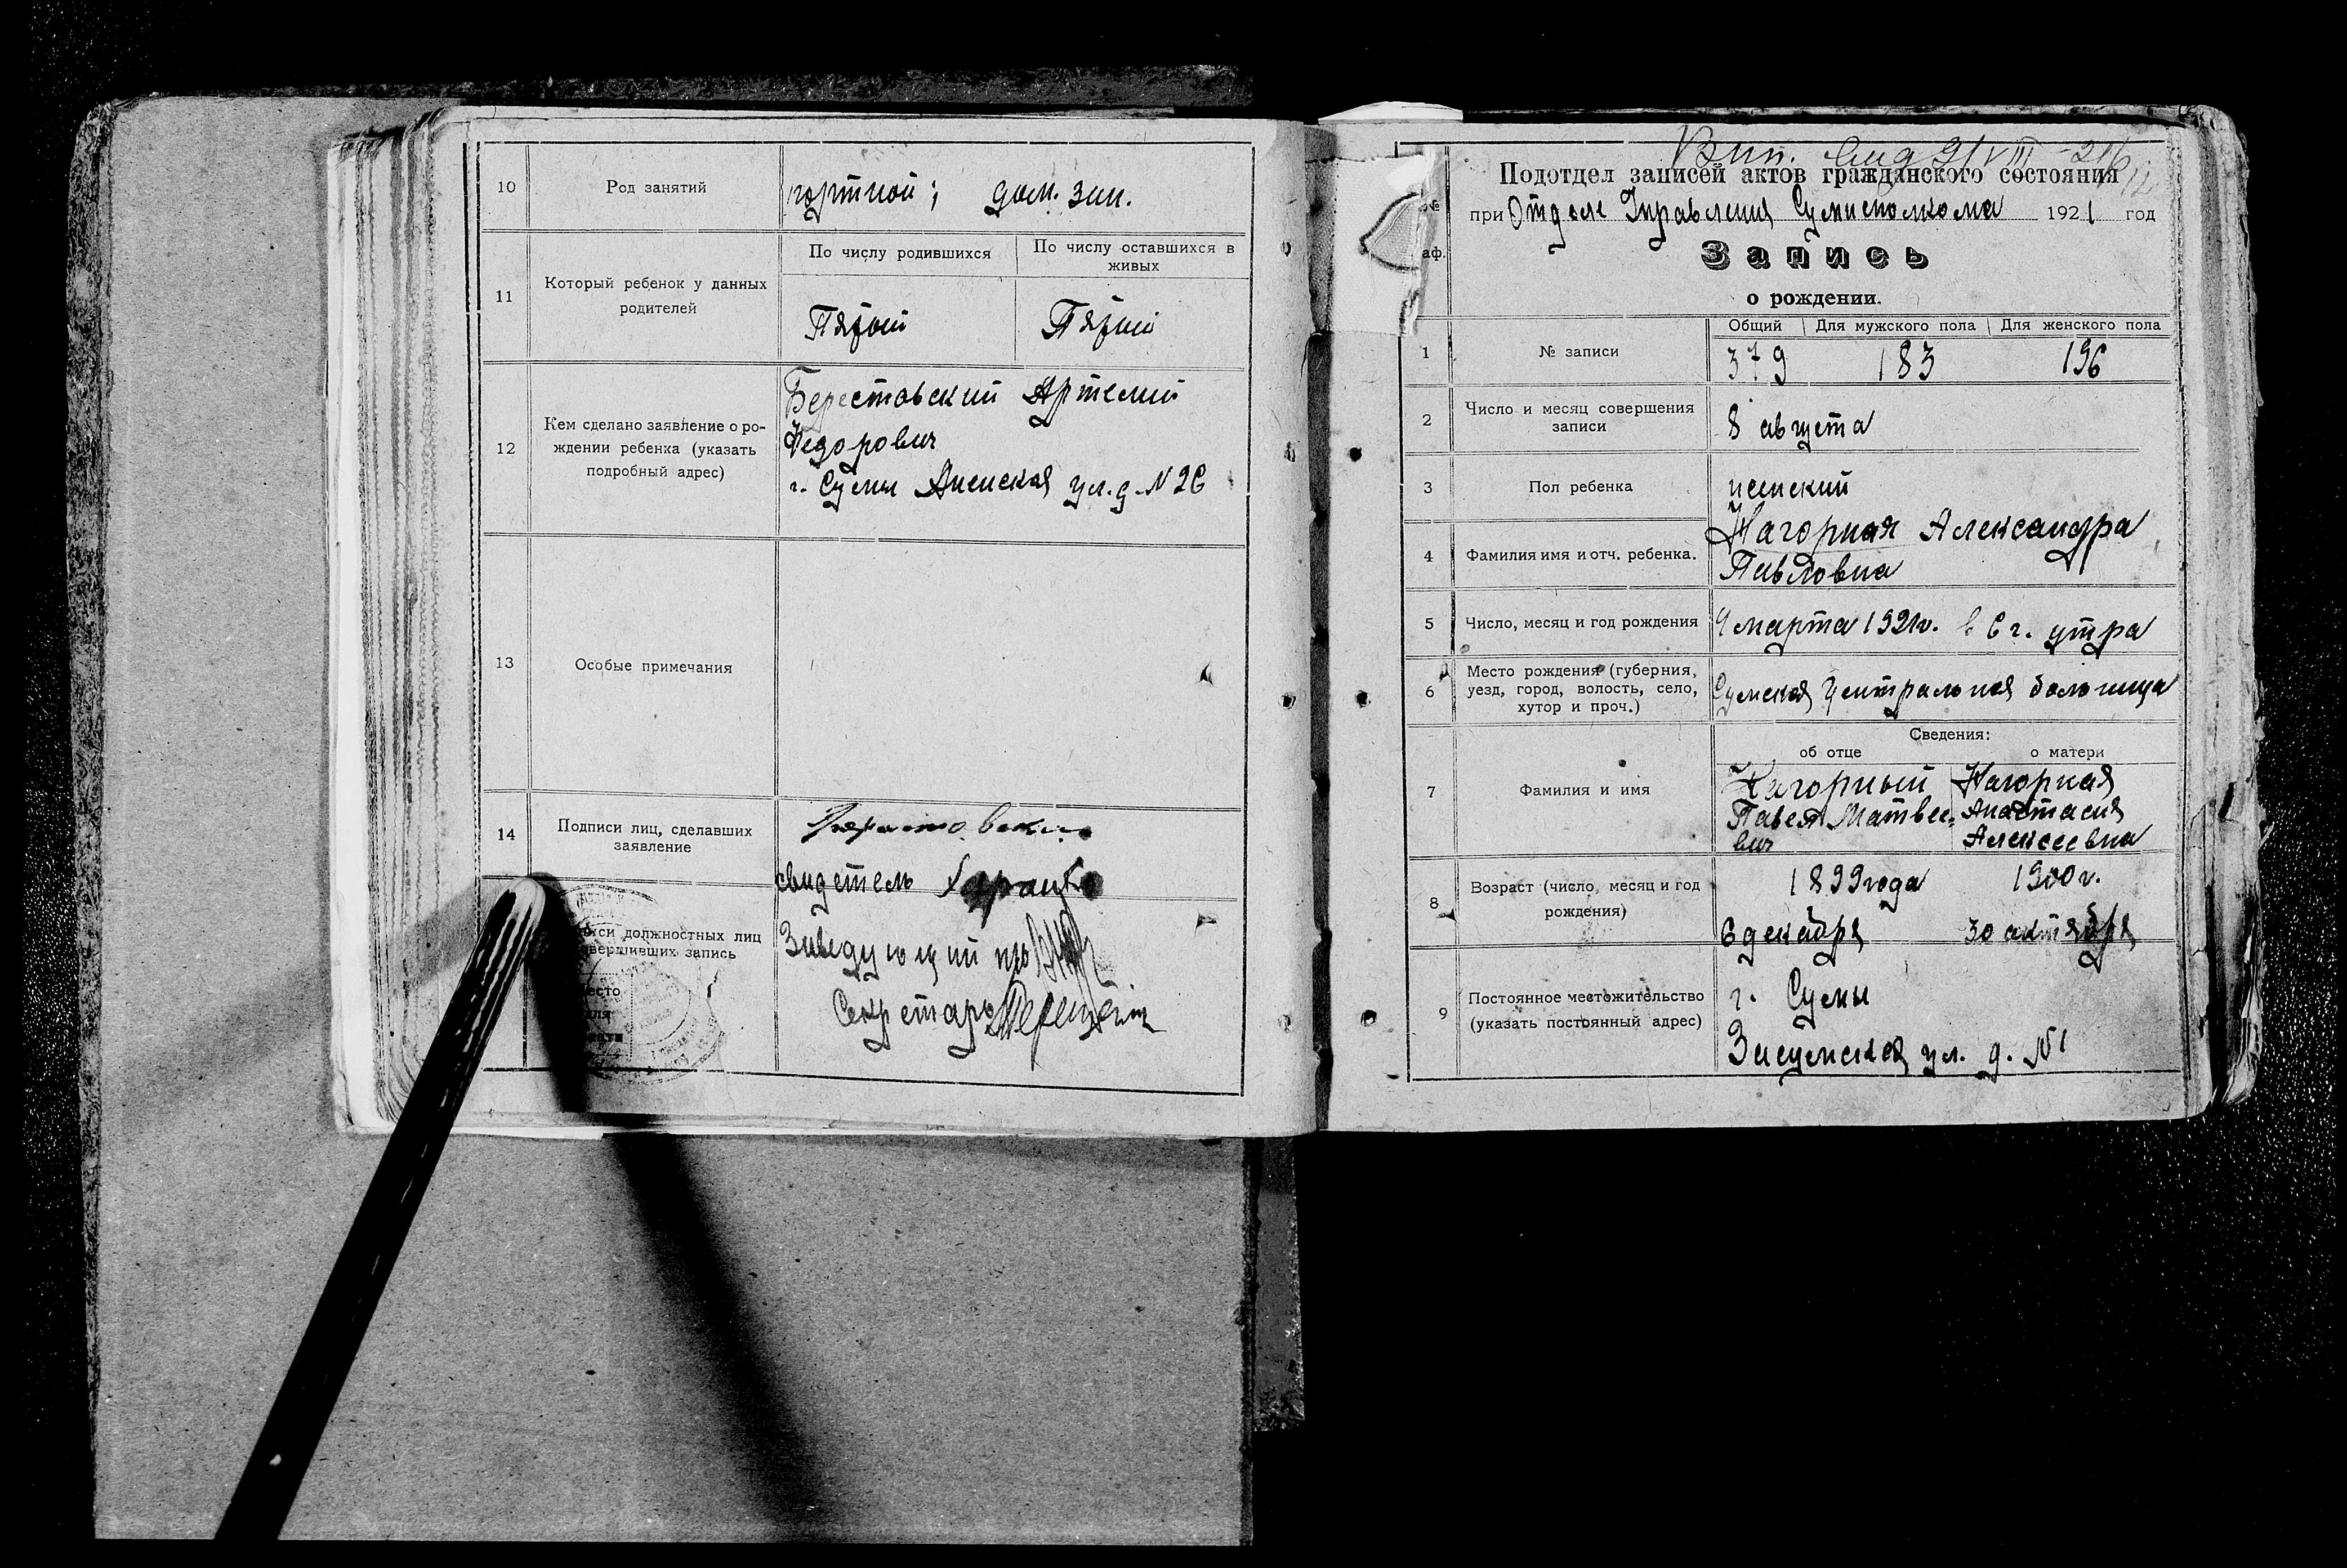 10
Род занятий
портной; дом. зан.
11
Который ребенок у данных
родителей
По числу родившихся
По числу оставшихся в
живых
Пятый
Пятый
12
Кем сделано заявление о ро-
ждении ребенка (указать
подробный адрес)
Берестовский Артемий
Федорович
г. Сумы ул. д. № 26
13
Особые примечания
14
Подписи лиц, сделавших
заявление
свидетель
си должностных лиц
вершивших запись
Заведующий
Секретарь
Вип.
Подотдел записей актов гражданского состояния
№
при Отделе Управления Сумисполкома 1921 год
аф.
Запись
о рождении.
1
№ записи
Общий
Для мужского пола
Для женского пола
379
183
196
2
Число и месяц совершения
записи
8 августа
3
Пол ребенка
женский
4
Фамилия имя и отч. ребенка.
Нагорная Александра
Павловна
5
Число, месяц и год рождения
4 марта 1921 г. в 6 ч. утра
6
Место рождения (губерния,
уезд, город, волость, село,
хутор и проч.)
Сумская Центральная больница
7
Фамилия и имя
Сведения:
об отце
о матери
Нагорный
Павел Матвее-
вич
Нагорная
Анастасия
Алексеевна
8
Возраст (число, месяц и год
рождения)
1899 года
6 декабря
1900 г.
30 октября
9
Постоянное местожительство
(указать постоянный адрес)
г. Сумы
Засумская ул. д. № 1